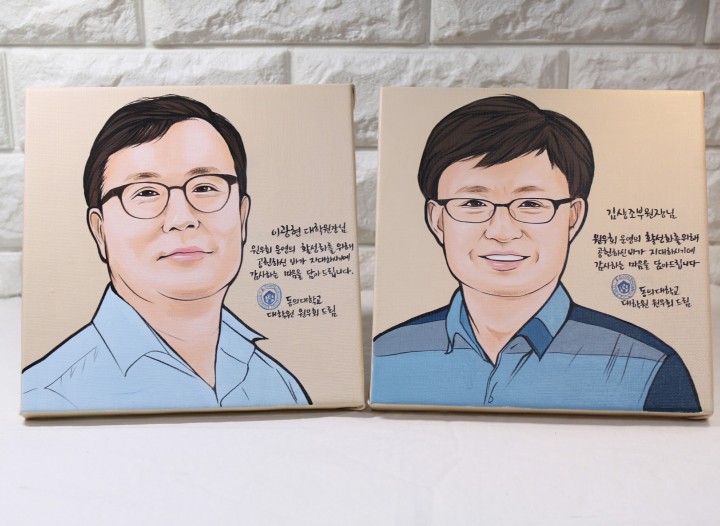 이광현 대학원장님
원우회 운영의 활성화를 위해
공헌하신 바가 지대하시기에
감사하는 마음을 담아드립니다.
동의대학교
대학원 원우회 드림
김상조부원장님
원우회 운영의 활성화를위해
공헌하신 바가 지대하시기에
감사하는 마음을 담아드립니다
동의대학교
대학원 원우회 드림